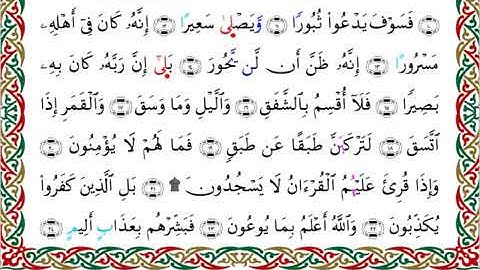 فَسَوْفَ يَدْعُوا۟ ثُبُورًا ۝ وَيَصْلَىٰ سَعِيرًا ۝ إِنَّهُۥ كَانَ فِىٓ أَهْلِهِۦ
مَسْرُورًا ۝ إِنَّهُۥ ظَنَّ أَن لَّن يَحُورَ ۝ بَلَىٰٓ إِنَّ رَبَّهُۥ كَانَ بِهِۦ
بَصِيرًا ۝ فَلَآ أُقْسِمُ بِٱلشَّفَقِ ۝ وَٱلَّيْلِ وَمَا وَسَقَ ۝ وَٱلْقَمَرِ إِذَا
ٱتَّسَقَ ۝ لَتَرْكَبُنَّ طَبَقًا عَن طَبَقٍ ۝ فَمَا لَهُمْ لَا يُؤْمِنُونَ ۝
وَإِذَا قُرِئَ عَلَيْهِمُ ٱلْقُرْءَانُ لَا يَسْجُدُونَ ۩ ۝ بَلِ ٱلَّذِينَ كَفَرُوا۟
يُكَذِّبُونَ ۝ وَٱللَّهُ أَعْلَمُ بِمَا يُوعُونَ ۝ فَبَشِّرْهُم بِعَذَابٍ أَلِيمٍ ۝